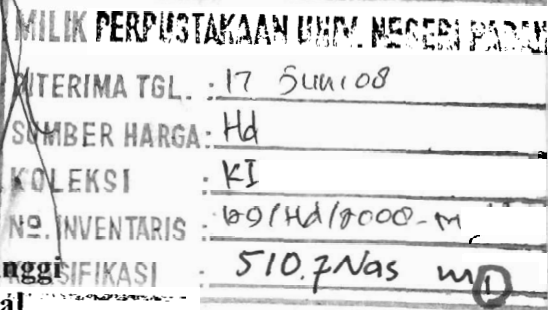 MILIK PERPUSTAKAAN UNIV. NEGERI PADAN
DITERIMA TGL. : 17 Juni 08
SUMBER HARGA : Hd
KOLEKSI : KI
NO. INVENTARIS : /Hd/2008-m
nggi KLASIFIKASI : 510.7 Nas m 1
al